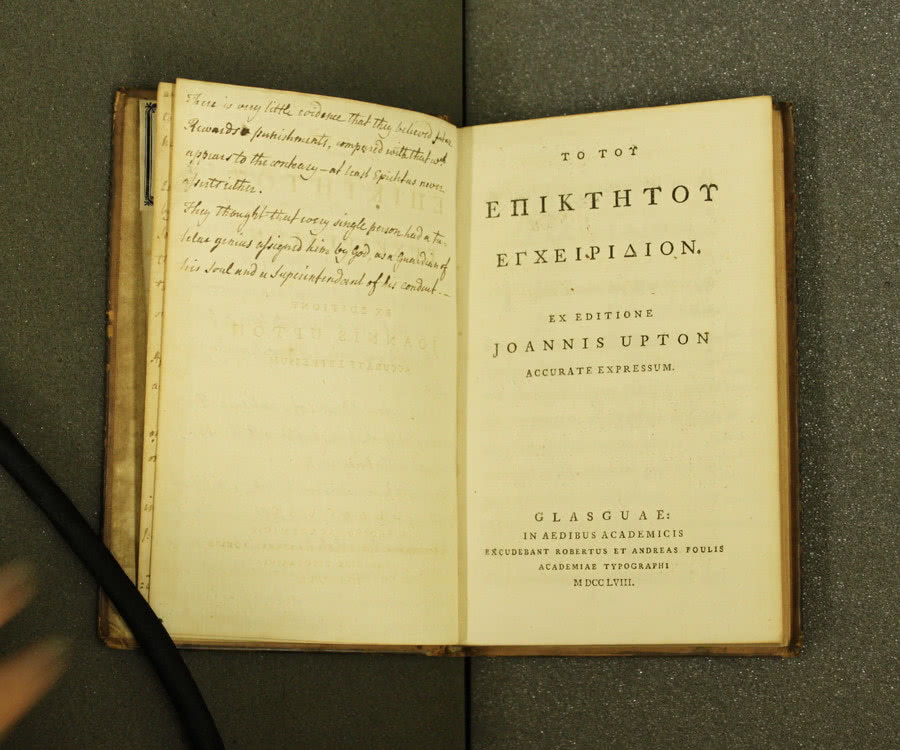 There is very little evidence that they believed future
Rewards & punishments, compared with that wch
appears to the contrary – at least Epictetus never
asserts either.
They thought that every single person had a tu-
telar genius assigned him by God, as a Guardian of
his soul and a Superintendant of his conduct. –
ΤΟ ΤΟΥ
ΕΠΙΚΤΗΤΟΥ
ΕΓΧΕΙΡΙΔΙΟΝ.
EX EDITIONE
JOANNIS UPTON
ACCURATE EXPRESSUM.
GLASGUAE:
IN AEDIBUS ACADEMICIS
EXCUDEBANT ROBERTUS ET ANDREAS FOULIS
ACADEMIAE TYPOGRAPHI
M DCC LVIII.